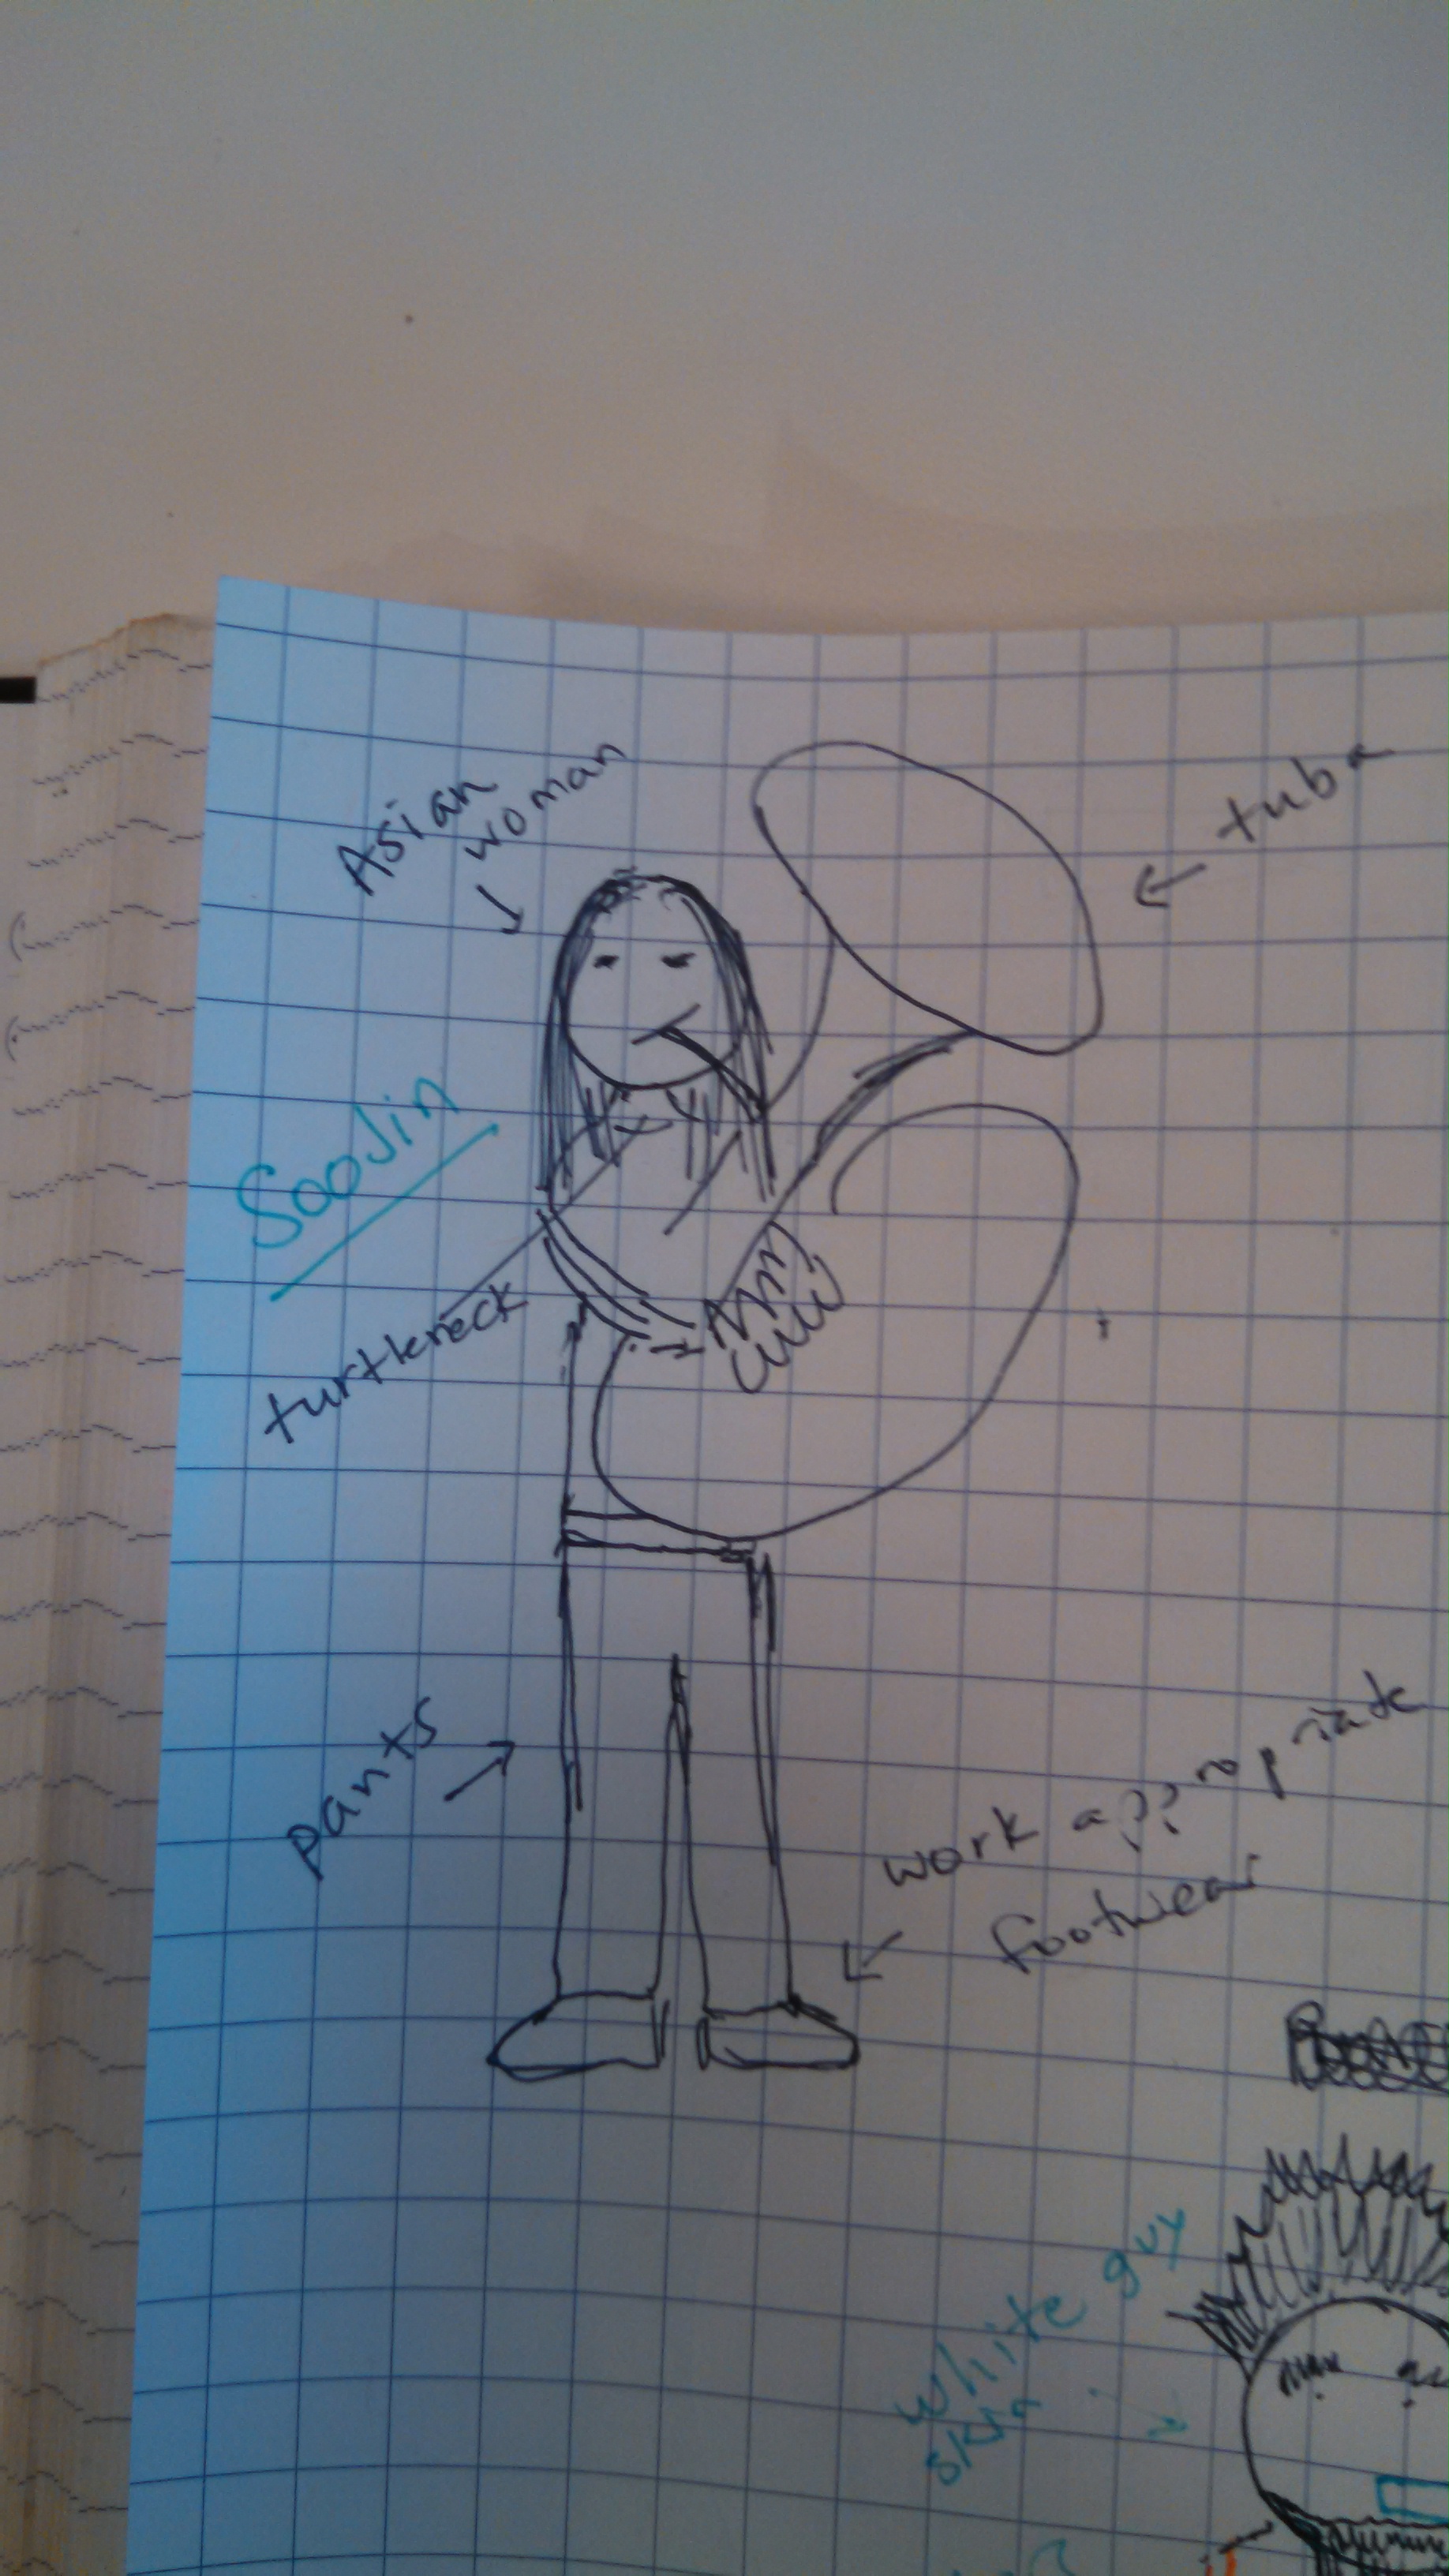 Asian
woman
tuba
SooJin
turtleneck
pants
work appropriate
footwear
white guy
skin